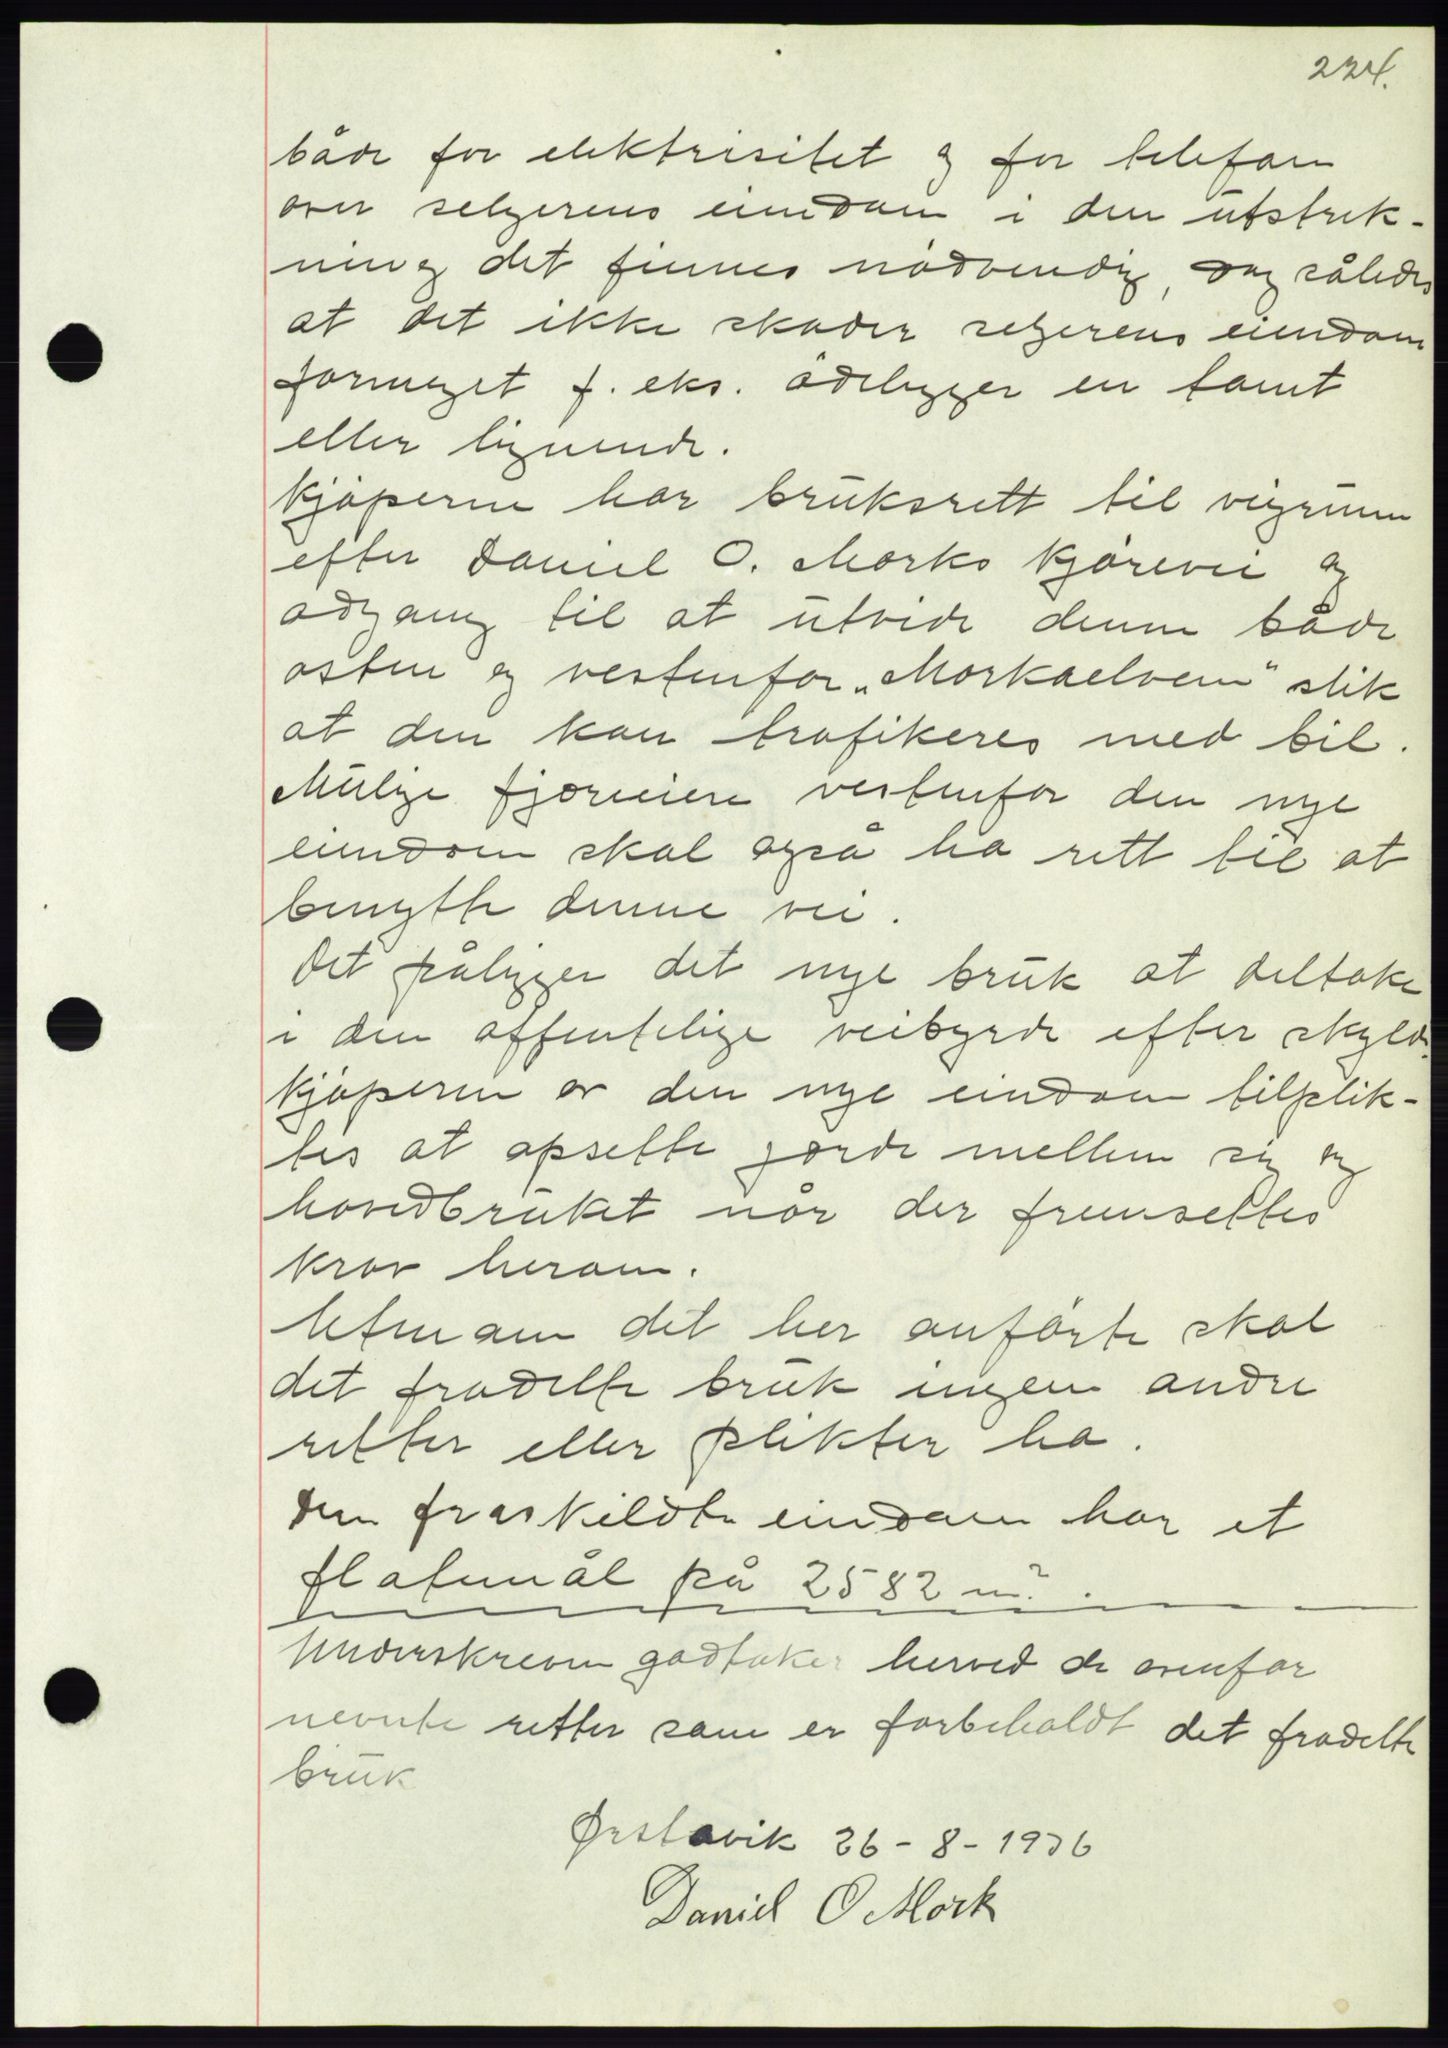 224.
både for elektrisitet og for telefon
over selgerens eiendom i den utstrek-
ning det finnes nødvendig, og således
at det ikke skader selgerens eiendom
formeget f. eks. ødelegger en tomt
eller lignende.
Kjøperne har bruksrett til veigrunn
efter Daniel O. Morks kjørevei og
adgang til at utvide denne både
østen og vestenfor „Morkaelven" slik
at den kan trafikeres med bil.
Mulige fjøreeiere vestenfor den nye
eiendom skal også ha rett til at
benytte denne vei.
Det påligger det nye bruk at deltake
i den offentelige veibyrde efter skyld.
Kjøperne av den nye eiendom tilplik-
tes at opsette gjerde mellem sig og
hovedbruket når der fremsettes
krav herom.
Utenom det her anførte skal
det fradelte bruk ingen andre
retter eller plikter ha.
Den fraskildte eiendom har et
flatemål på 2582 m².
Underskreven godtaker herved de ovenfor
nevnte retter som er forbeholdt det fradelte
bruk
Ørstavik 26-8-1936
Daniel O Mork